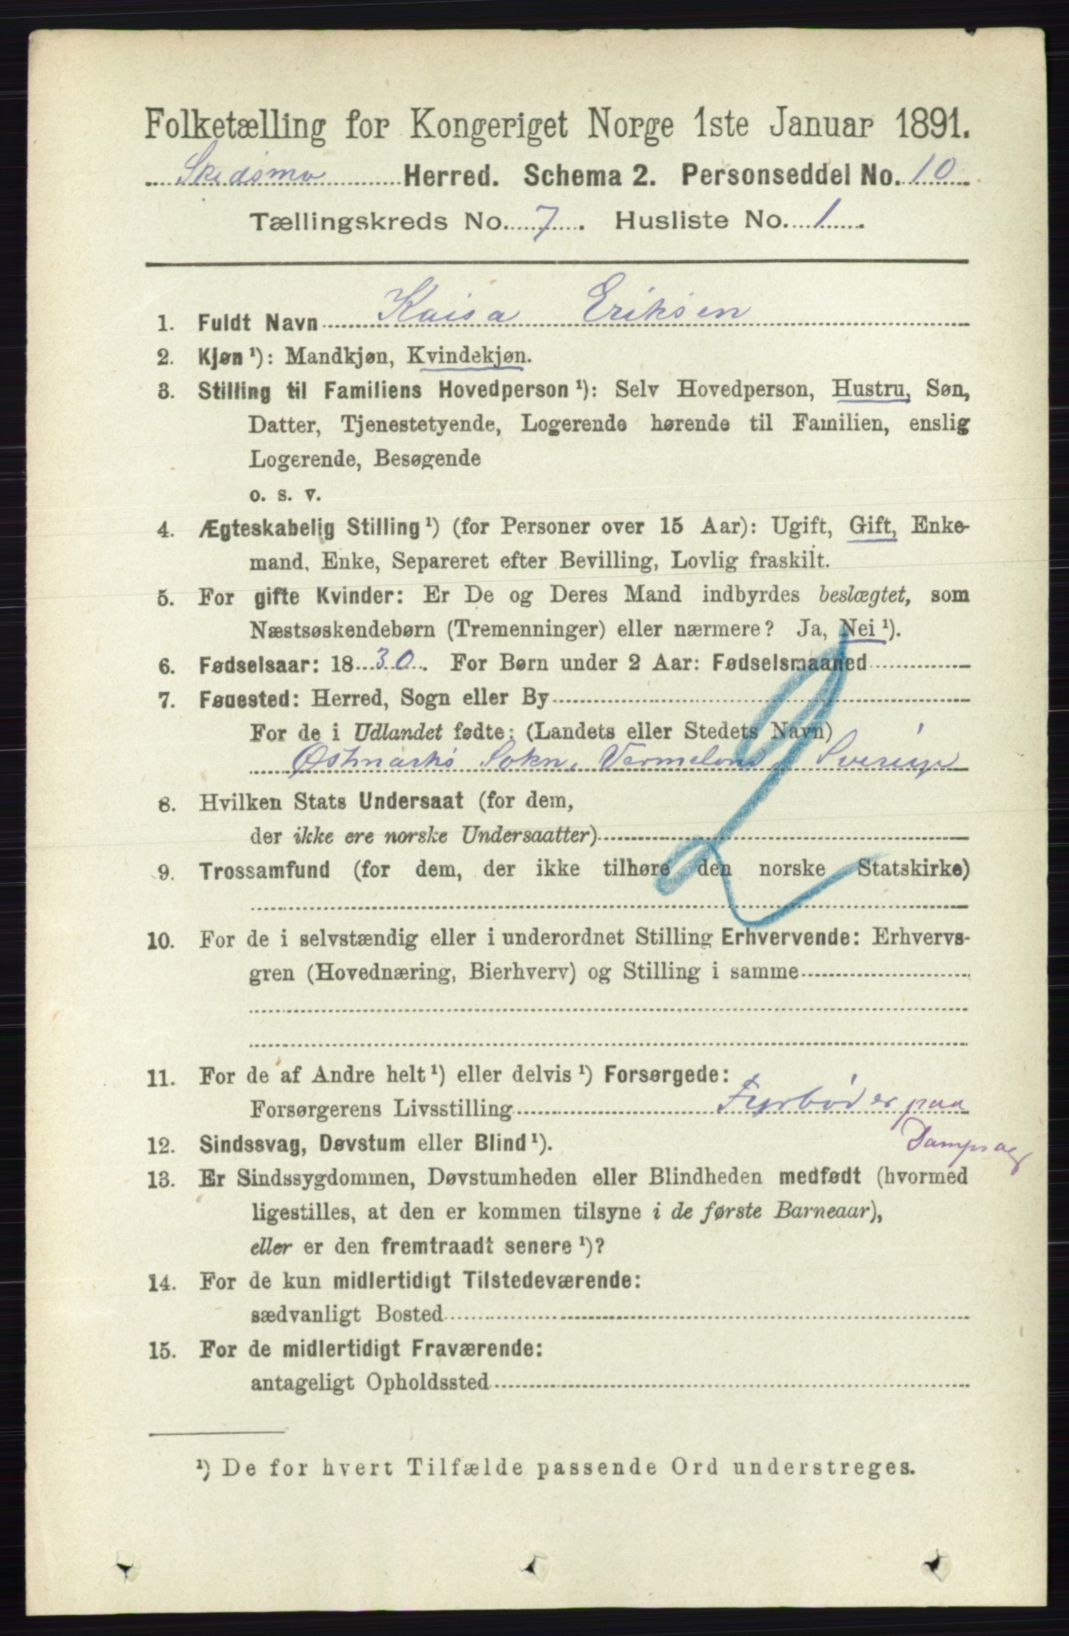 Folketælling for Kongeriget Norge 1ste Januar 1891.
Skedsmo Herred. Schema 2. Personseddel No. 10
Tællingskreds No. 7. Husliste No. 1.
1. Fuldt Navn Kaisa Eriksen
2. Kjøn¹): Mandkjøn, Kvindekjøn.
3. Stilling til Familiens Hovedperson¹): Selv Hovedperson, Hustru, Søn,
Datter, Tjenestetyende, Logerende hørende til Familien, enslig
Logerende, Besøgende
o. s. v.
4. Ægteskabelig Stilling¹) (for Personer over 15 Aar): Ugift, Gift, Enke-
mand, Enke, Separeret efter Bevilling, Lovlig fraskilt.
5. For gifte Kvinder: Er De og Deres Mand indbyrdes beslægtet, som
Næstsøskendebørn (Tremenninger) eller nærmere? Ja, Nei¹).
6. Fødselsaar: 1830. For Børn under 2 Aar: Fødselsmaaned
7. Føuested: Herred, Sogn eller By
For de i Udlandet fødte: (Landets eller Stedets Navn)
Østmarks Sokn, Vermeland Sverige
8. Hvilken Stats Undersaat (for dem,
der ikke ere norske Undersaatter)
9. Trossamfund (for dem, der ikke tilhøre den norske Statskirke)
10. For de i selvstændig eller i underordnet Stilling Erhvervende: Erhvervs-
gren (Hovednæring, Bierhverv) og Stilling i samme
11. For de af Andre helt¹) eller delvis¹) Forsørgede:
Forsørgerens Livsstilling Fyrbøder paa
Dampsag
12. Sindssvag, Døvstum eller Blind¹).
13. Er Sindssygdommen, Døvstumheden eller Blindheden medfødt (hvormed
ligestilles, at den er kommen tilsyne i de første Barneaar),
eller er den fremtraadt senere¹)?
14. For de kun midlertidigt Tilstedeværende:
sædvanligt Bosted
15. For de midlertidigt Fraværende:
antageligt Opholdssted
¹) De for hvert Tilfælde passende Ord understreges.